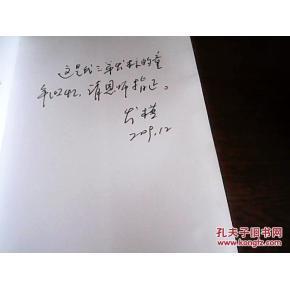 这是我三年出版的童
年回忆,请恩师指正。
2009.12
孔夫子旧书网
www.kongfz.com